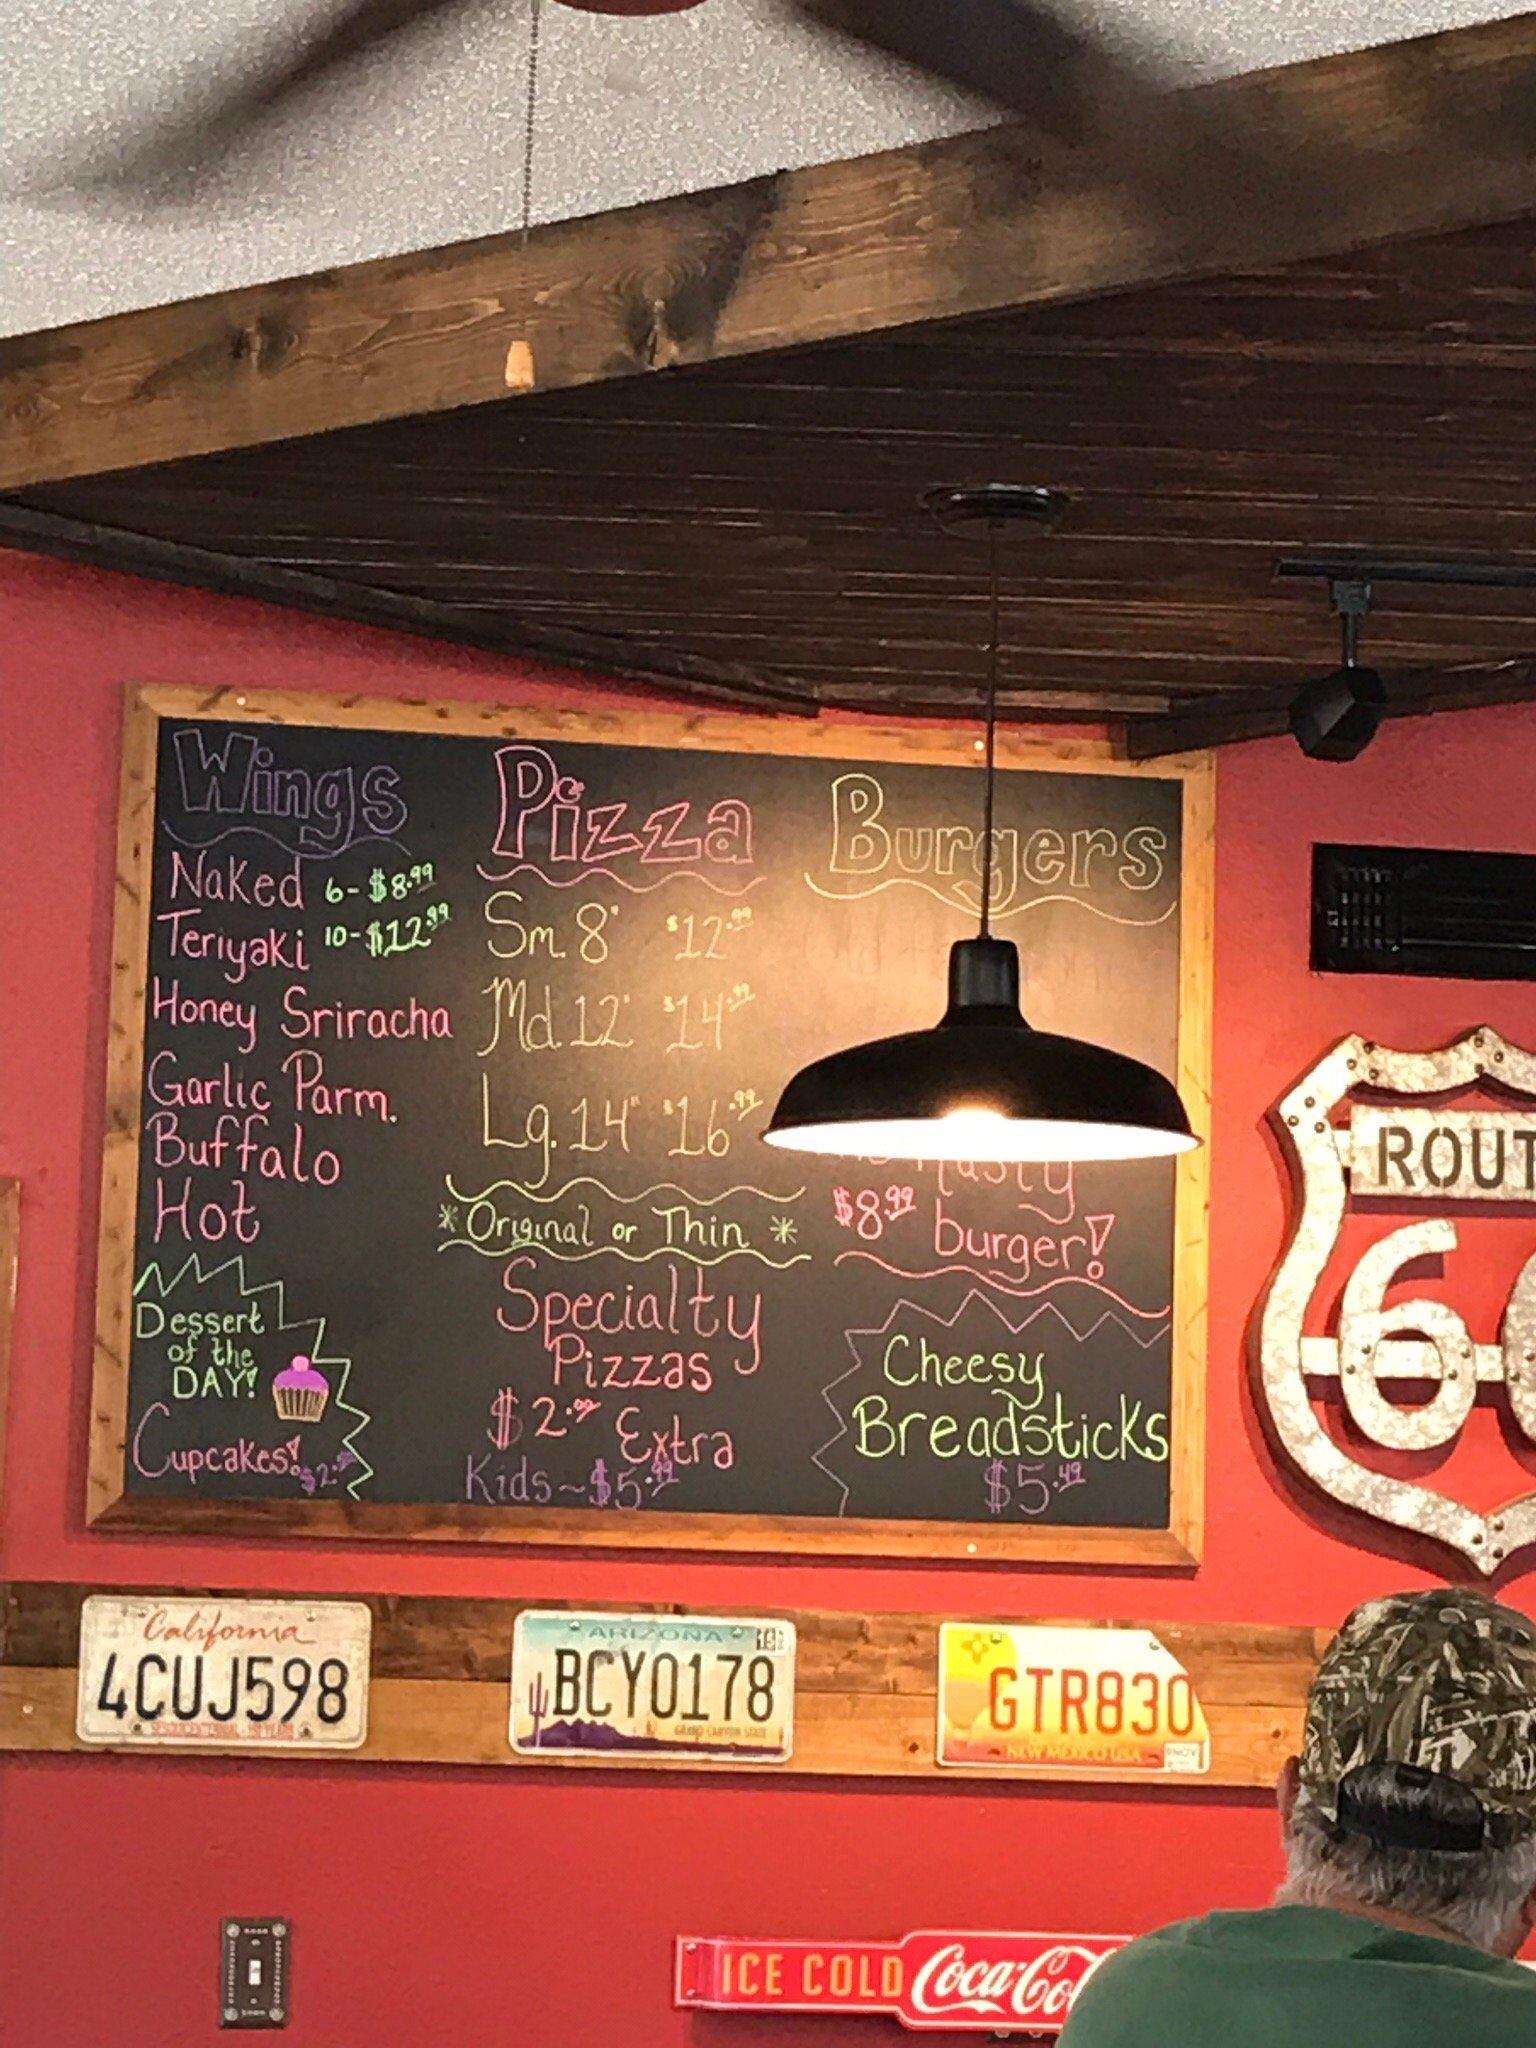 Wings
Naked 6-$8.99
Teriyaki 10-$12.99
Honey Sriracha
Garlic Parm.
Buffalo
Hot
Dessert
of the
DAY!
Cupcakes!
Pizza
Sm. 8" $12.99
Md. 12" $14.99
Lg. 14" $16.99
*Original or Thin*
Specialty
Pizzas
$2.00 Extra
Kids~$5.99
Burgers
$8.99 burger!
Cheesy
Breadsticks
$5.49
ROUT
6
California
4CUJ598
SESQUICENTENNIAL 150 YEARS
ARIZONA
BCY0178
GRAND CANYON STATE
GTR830
NEW MEXICO USA
ICE COLD Coca-Co